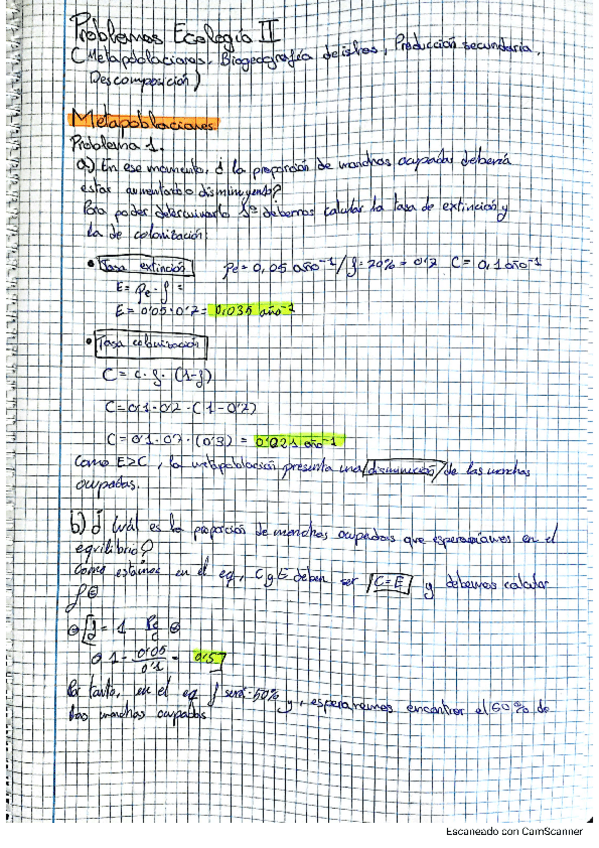 Problemas Ecología II
(Metapoblaciones, Biogeografía de islas, Producción secundaria,
Descomposición)
Metapoblaciones
Problema 1.
a) En ese momento, ¿ la proporción de manchas ocupadas debería
estar aumentando o disminuyendo?
Para poder determinarlo 1º debemos calcular la tasa de extinción y
la de colonización:
• Tasa extinción Pe = 0,05 año⁻¹ / f = 70% = 0'7 C = 0,1 año⁻¹
E = Pe · f =
E = 0'05 · 0'7 = 0,035 año⁻¹
• Tasa colonización
C = c · f · (1-f)
C = 0'1 · 0'7 · (1 - 0'7)
C = 0'1 · 0'7 · (0'3) = 0'021 año⁻¹
Como E>C, la metapoblación presenta una disminución de las manchas
ocupadas.
b) ¿ Cuál es la proporción de manchas ocupadas que esperaríamos en el
equilibrio?
Como estamos en el eq, C y E deben ser C=E y debemos calcular
f
f = 1 - Pe/c
1 - 0'05/0'1 = 0'5
Por tanto, en el eq f será 50% y, esperaremos encontrar el 50% de
las manchas ocupadas
Escaneado con CamScanner